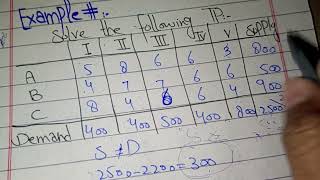 Example #:-
Solve the following TP:-
I II III IV V Supply
A 5 8 6 6 3 800
B 4 7 7 6 5 500
C 8 4 6 6 4 900
Demand 400 400 500 400 800 2500
S ≠ D
2500-2200=300